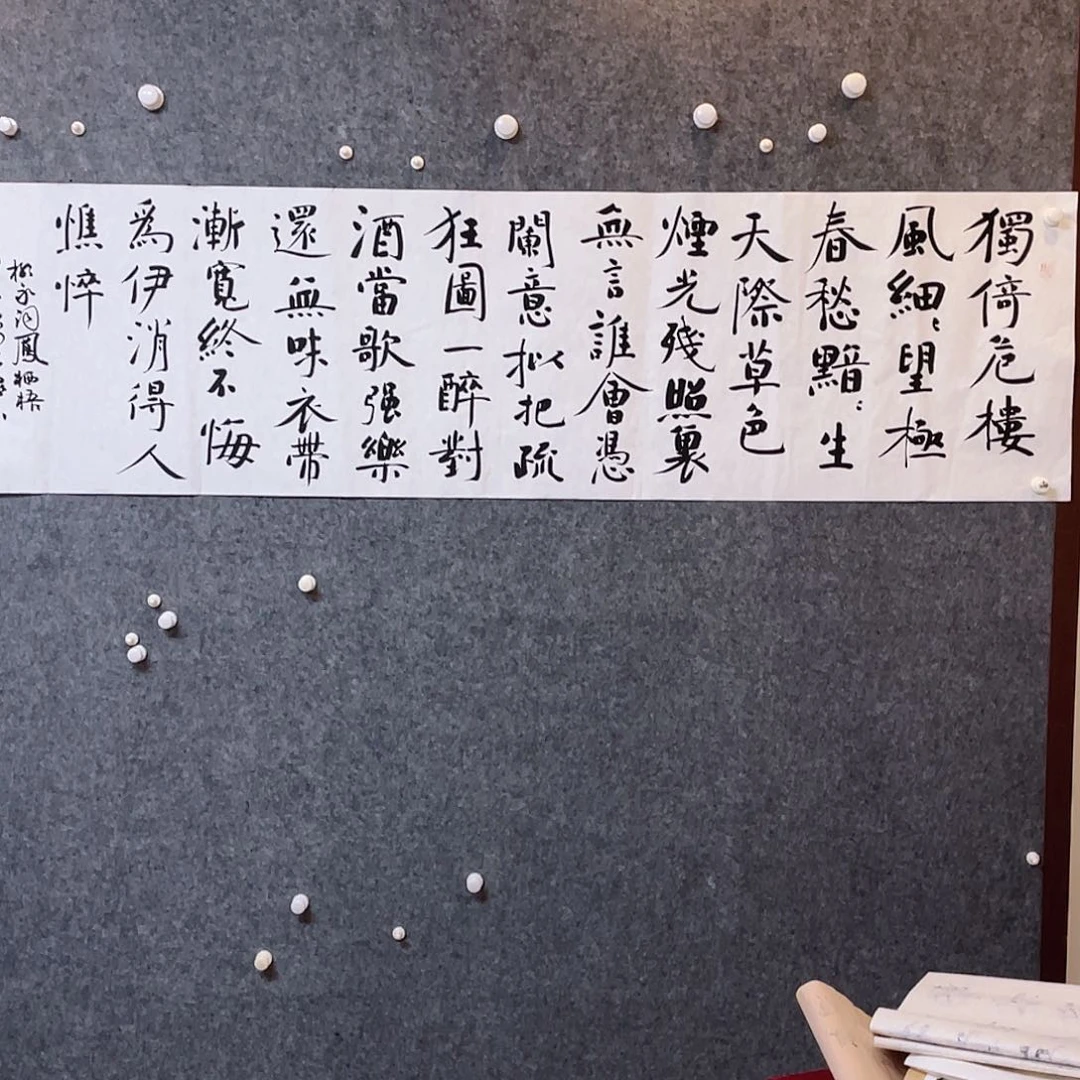 獨倚危樓
風細〻望極
春愁黯〻生
天際草色
煙光殘照裏
無言誰會憑
闌意拟把疏
狂圖一醉對
酒當歌强樂
還無味衣帶
漸寬終不悔
爲伊消得人
憔悴
柳永詞鳳栖梧